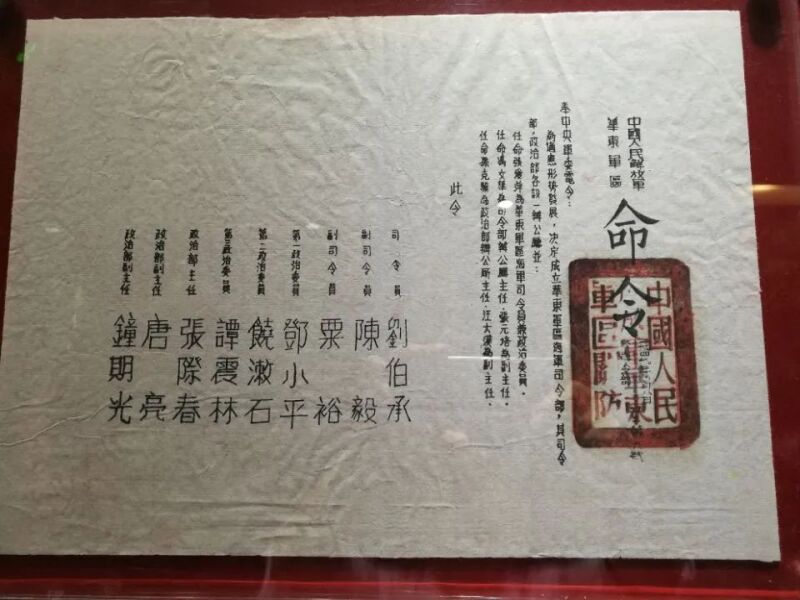 中國人民解放軍
華東軍區
命令
奉中央軍委電令：
為適應形勢發展，決定成立華東軍區海軍司令部，其司令
部，政治部各設一辦公廳並：
任命張愛萍為華東軍區海軍司令員兼政治委員．
任命馮文華為司令部辦公廳主任．張元培為副主任．
任命孫克驥為政治部辦公廳主任．汪大漠為副主任．
此令
司令員 劉伯承
副司令員 陳毅
副司令員 粟裕
第一政治委員 鄧小平
第二政治委員 饒漱石
第三政治委員 譚震林
政治部主任 張際春
政治部副主任 唐亮
政治部副主任 鐘期光
中國人民
華東
軍區 防